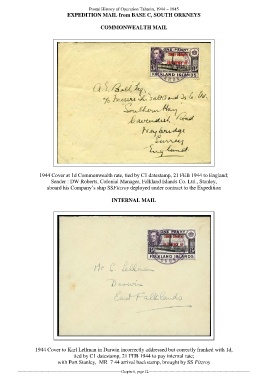 Postal History of Operation Tabarin, 1944 - 1945
EXPEDITION MAIL from BASE C, SOUTH ORKNEYS
COMMONWEALTH MAIL
ONE PENNY
FALKLAND ISLANDS
A. E. Ball Esq
Southern Hay
Cavendish Road
Weybridge
Surrey
England
1944 Cover at 1d Commonwealth rate, tied by C1 datestamp, 21 FEB 1944 to England;
Sender : DW Roberts, Colonial Manager, Falkland Islands Co. Ltd., Stanley,
aboard his Company's ship SS Fitzroy deployed under contract to the Expedition
INTERNAL MAIL
ONE PENNY
FALKLAND ISLANDS
Mr C Lellman
Darwin
East Falklands
1944 Cover to Karl Lellman in Darwin incorrectly addressed but correctly franked with 1d,
tied by C1 datestamp, 21 FEB 1944 to pay internal rate;
with Port Stanley, MR 7 44 arrival backstamp, brought by SS Fitzroy.